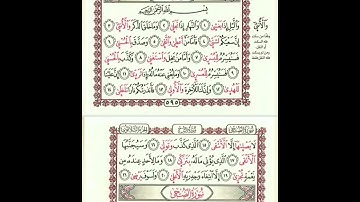 بِسْمِ اللَّهِ الرَّحْمَٰنِ الرَّحِيمِ
وَاللَّيْلِ إِذَا يَغْشَىٰ ١ وَالنَّهَارِ إِذَا تَجَلَّىٰ ٢ وَمَا خَلَقَ الذَّكَرَ وَالْأُنثَىٰ ٣
إِنَّ سَعْيَكُمْ لَشَتَّىٰ ٤ فَأَمَّا مَنْ أَعْطَىٰ وَاتَّقَىٰ ٥ وَصَدَّقَ بِالْحُسْنَىٰ ٦
فَسَنُيَسِّرُهُ لِلْيُسْرَىٰ ٧ وَأَمَّا مَنْ بَخِلَ وَاسْتَغْنَىٰ ٨ وَكَذَّبَ بِالْحُسْنَىٰ ٩
فَسَنُيَسِّرُهُ لِلْعُسْرَىٰ ١٠ وَمَا يُغْنِي عَنْهُ مَالُهُ إِذَا تَرَدَّىٰ ١١ إِنَّ عَلَيْنَا
لَلْهُدَىٰ ١٢ وَإِنَّ لَنَا لَلْآخِرَةَ وَالْأُولَىٰ ١٣ فَأَنذَرْتُكُمْ نَارًا تَلَظَّىٰ ١٤
٥٩٥
لَا يَصْلَاهَا إِلَّا الْأَشْقَى ١٥ الَّذِي كَذَّبَ وَتَوَلَّىٰ ١٦ وَسَيُجَنَّبُهَا
الْأَتْقَى ١٧ الَّذِي يُؤْتِي مَالَهُ يَتَزَكَّىٰ ١٨ وَمَا لِأَحَدٍ عِندَهُ مِن
نِّعْمَةٍ تُجْزَىٰ ١٩ إِلَّا ابْتِغَاءَ وَجْهِ رَبِّهِ الْأَعْلَىٰ ٢٠ وَلَسَوْفَ يَرْضَىٰ ٢١
سُورَةُ الضُّحَىٰ